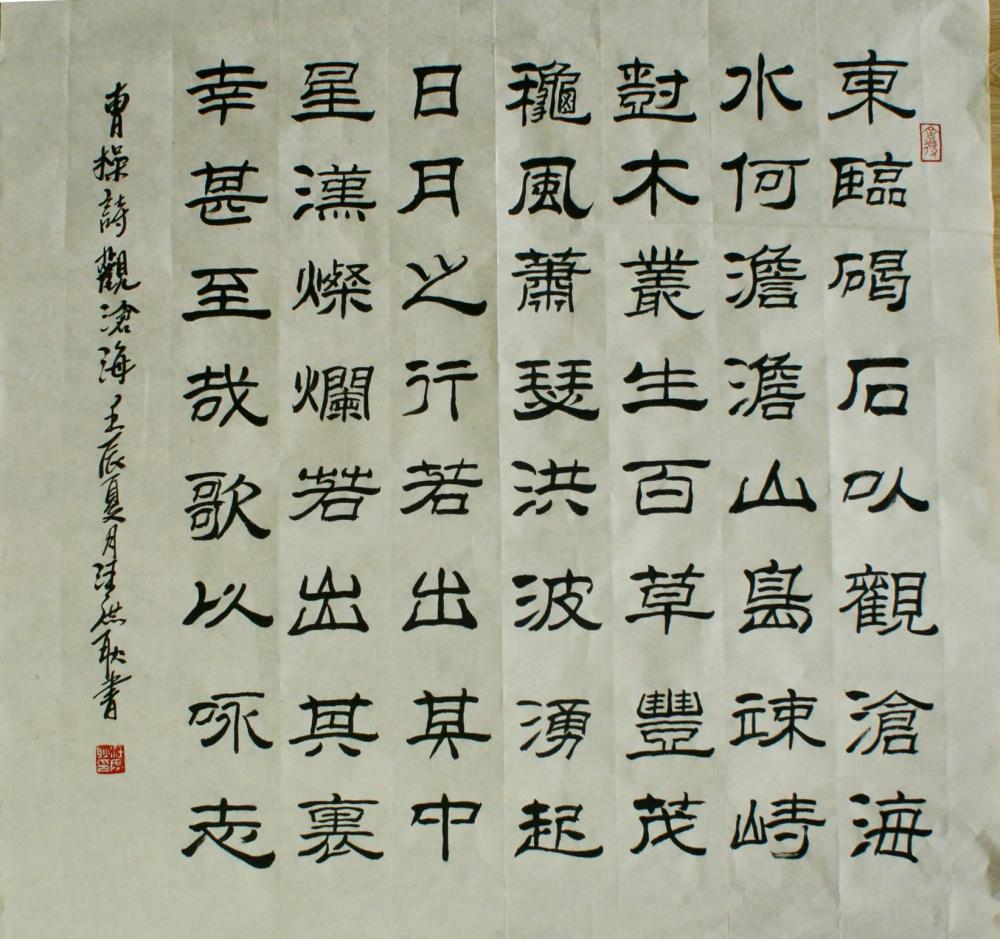 東臨碣石以觀滄海
水何澹澹山島竦峙
樹木叢生百草豐茂
龝風蕭瑟洪波湧起
日月之行若出其中
星漢燦爛若出其裏
幸甚至哉歌以咏志
曹操詩觀滄海壬辰夏月汪耿書
舍得